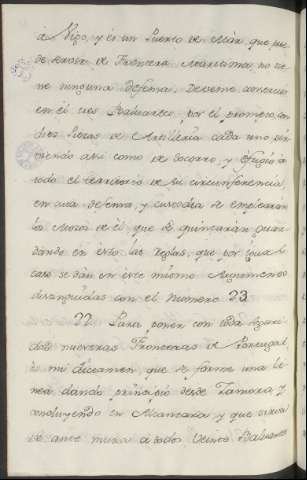 à Vigo, y es un Puerto de Mar, que pue
de servir de Frontera Maritima, no tie
ne ninguna defensa. Deveme construir
en él tres Baluartes, por el promero, con
diez Piezas de Artilleria cada uno, sir
viendo asi como de socorro, y refugio à
todo el territorio de su circumferencia,
en cuia defensa, y custodia se emplearàn
los Mozos de él, que se quintaràn, guar
dando en esto las Reglas, que por igual
caso se dàn en este mismo Argumento
distinguidas con el numero 23.
22 Para poner con toda seguri
dad nuestras Fronteras de Portugal,
es mi dictamen que se forme una li
nea dando principio desde Zamora, y
concluyendo en Alcantara, y que sirva
de ante mura à todos Veinte Baluartes